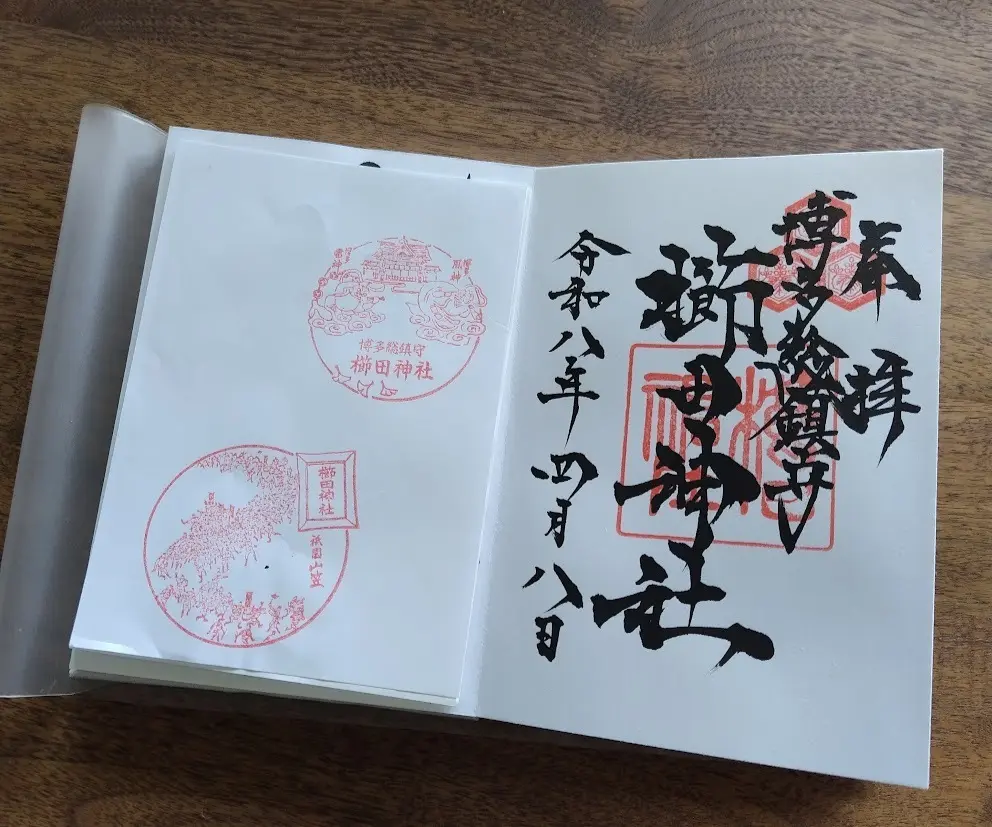 奉拝
博多総鎮守
櫛田神社
令和八年四月八日
博多総鎮守
櫛田神社
櫛田神社
祇園山笠